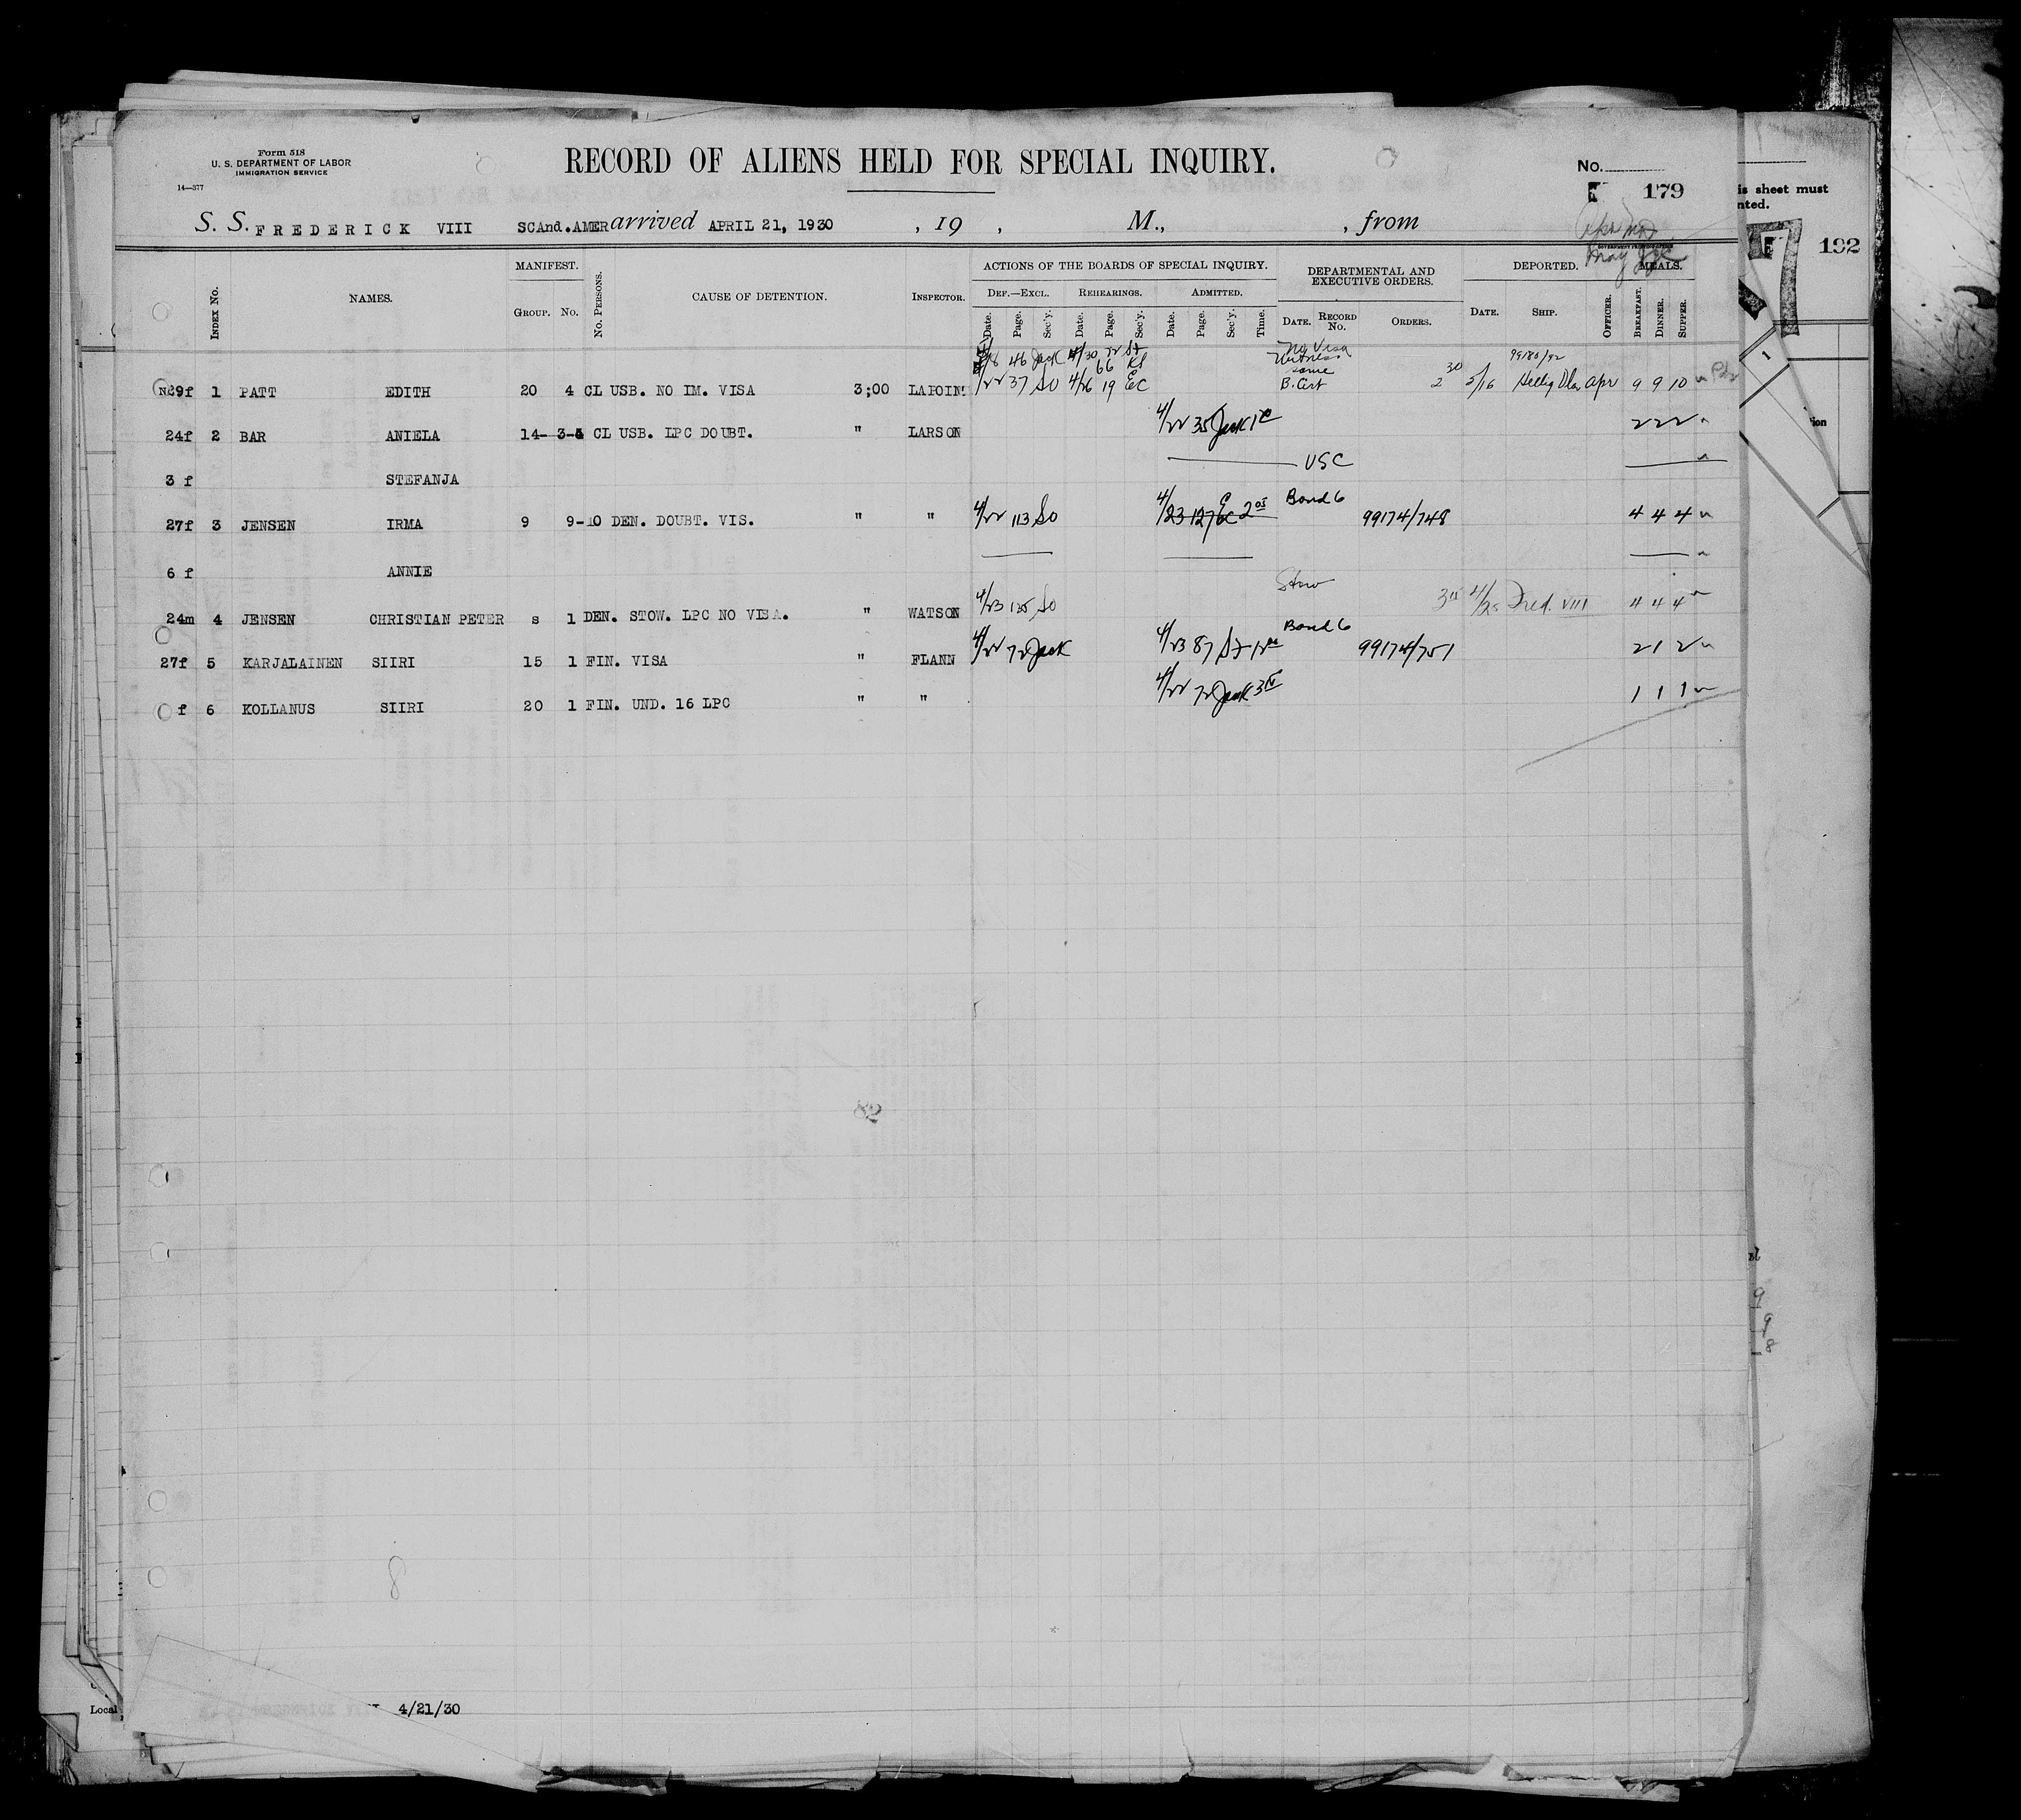 Form 518
U. S. DEPARTMENT OF LABOR
IMMIGRATION SERVICE
14—377
RECORD OF ALIENS HELD FOR SPECIAL INQUIRY.
No.
179
S. S. FREDERICK VIII SCAnd.AMER arrived APRIL 21, 1930 , 19 , M., , from
GOVERNMENT PRINTING OFFICE
INDEX No. NAMES. MANIFEST. GROUP. No. No. PERSONS. CAUSE OF DETENTION. INSPECTOR.
ACTIONS OF THE BOARDS OF SPECIAL INQUIRY.
DEF.—EXCL. REHEARINGS. ADMITTED.
Date. Page. Sec'y. Date. Page. Sec'y. Date. Page. Sec'y. Time.
DEPARTMENTAL AND EXECUTIVE ORDERS.
DATE. RECORD No. ORDERS.
DEPORTED.
DATE. SHIP. OFFICER.
MEALS.
BREAKFAST. DINNER. SUPPER.
46 Jack 4/30 72 St No Visa 99180/92
66 Witness
same
29f 1 PATT EDITH 20 4 CL USB. NO IM. VISA 3;00 LAPOIN 4/22 37 SO 4/26 19 EC B. Cert 2 30 5/16 9 9 10
24f 2 BAR ANIELA 14- 3-4 CL USB. LPC DOUBT. " LARSON 4/22 35 Jack 2 2 2
3 f STEFANJA USC
27f 3 JENSEN IRMA 9 9-10 DEN. DOUBT. VIS. " " 4/22 113 SO 4/23 127 EC Bond 6 99174/748 4 4 4
6 f ANNIE
24m 4 JENSEN CHRISTIAN PETER s 1 DEN. STOW. LPC NO VISA. " WATSON 4/23 135 SO Stow 4/25 Fred. VIII 4 4 4
27f 5 KARJALAINEN SIIRI 15 1 FIN. VISA " FLANN 4/22 72 Jack 4/23 87 St Bond 6 99174/751 2 1 2
f 6 KOLLANUS SIIRI 20 1 FIN. UND. 16 LPC " " 4/22 72 Jack 1 1 1
82
8
4/21/30
Local
is sheet must
nted.
192
1
ion
9
9
8